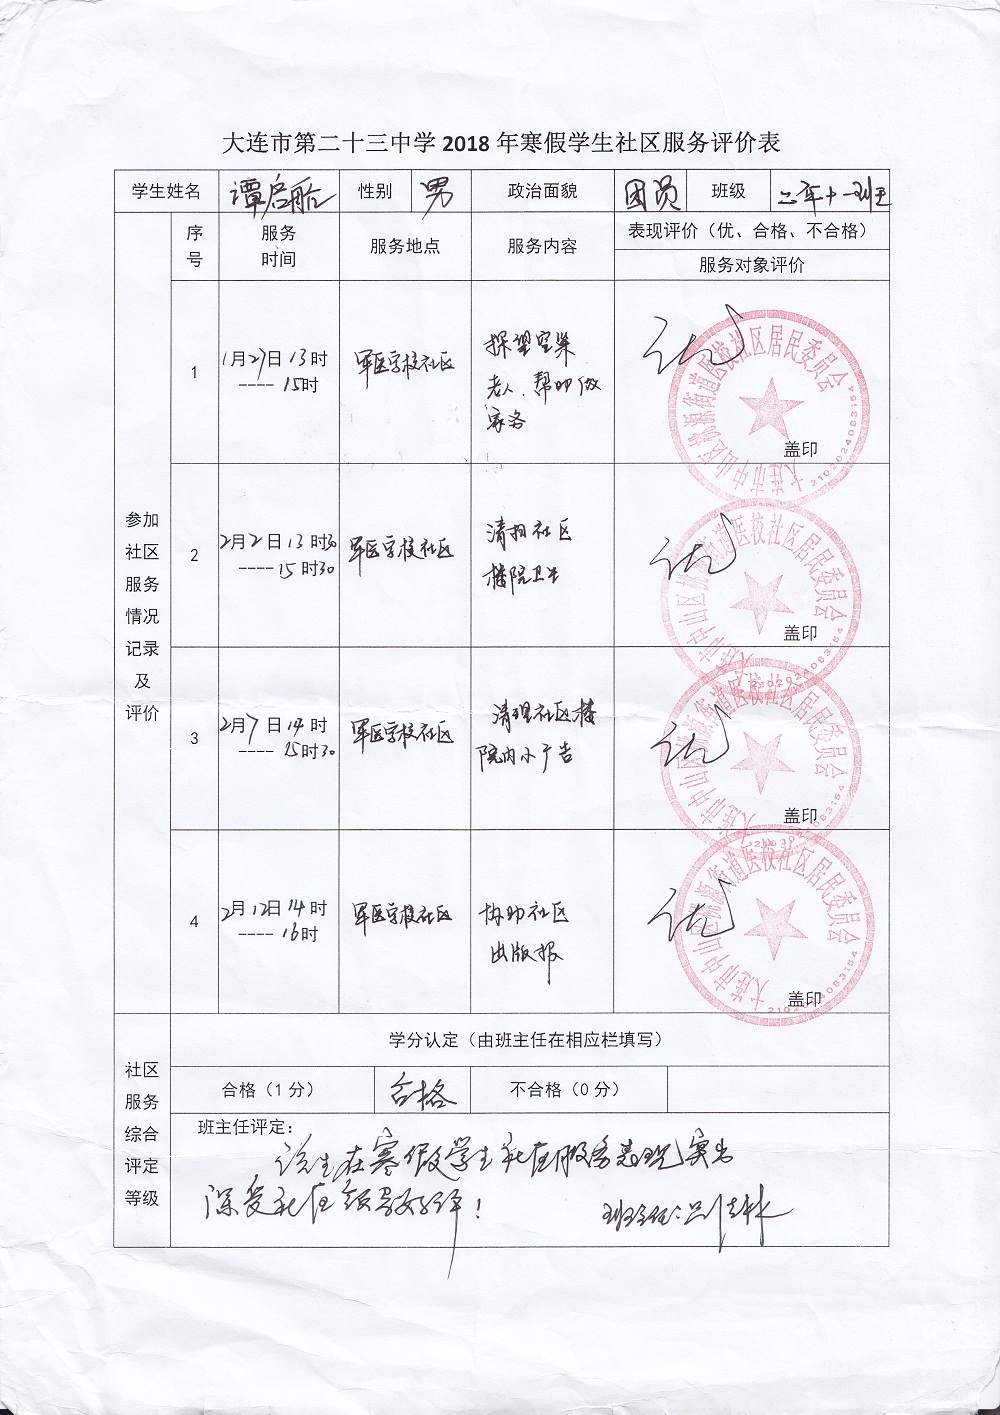 大连市第二十三中学 2018 年寒假学生社区服务评价表
学生姓名 谭启舱 性别 男 政治面貌 团员 班级 二年十一班
参加
社区
服务
情况
记录
及
评价
序
号
服务
时间
服务地点
服务内容
表现评价（优、合格、不合格）
服务对象评价
1
1月27日13时
---- 15时
军医学校社区
探望空巢
老人.帮助做
家务
优
盖印
大连市中山区桃源街道医校社区居民委员会
2
2月2日13时30
---- 15时30
军医学校社区
清扫社区
楼院卫生
优
盖印
大连市中山区桃源街道医校社区居民委员会
3
2月7日14时
---- 15时30
军医学校社区
清理社区楼
院内小广告
优
盖印
大连市中山区桃源街道医校社区居民委员会
4
2月12日14时
---- 16时
军医学校社区
协助社区
出版报
优
盖印
大连市中山区桃源街道医校社区居民委员会
社区
服务
综合
评定
等级
学分认定（由班主任在相应栏填写）
合格（1 分） 合格 不合格（0 分）
班主任评定：
该生在寒假学生社区服务表现突出
深受社区领导好评！ 班主任：